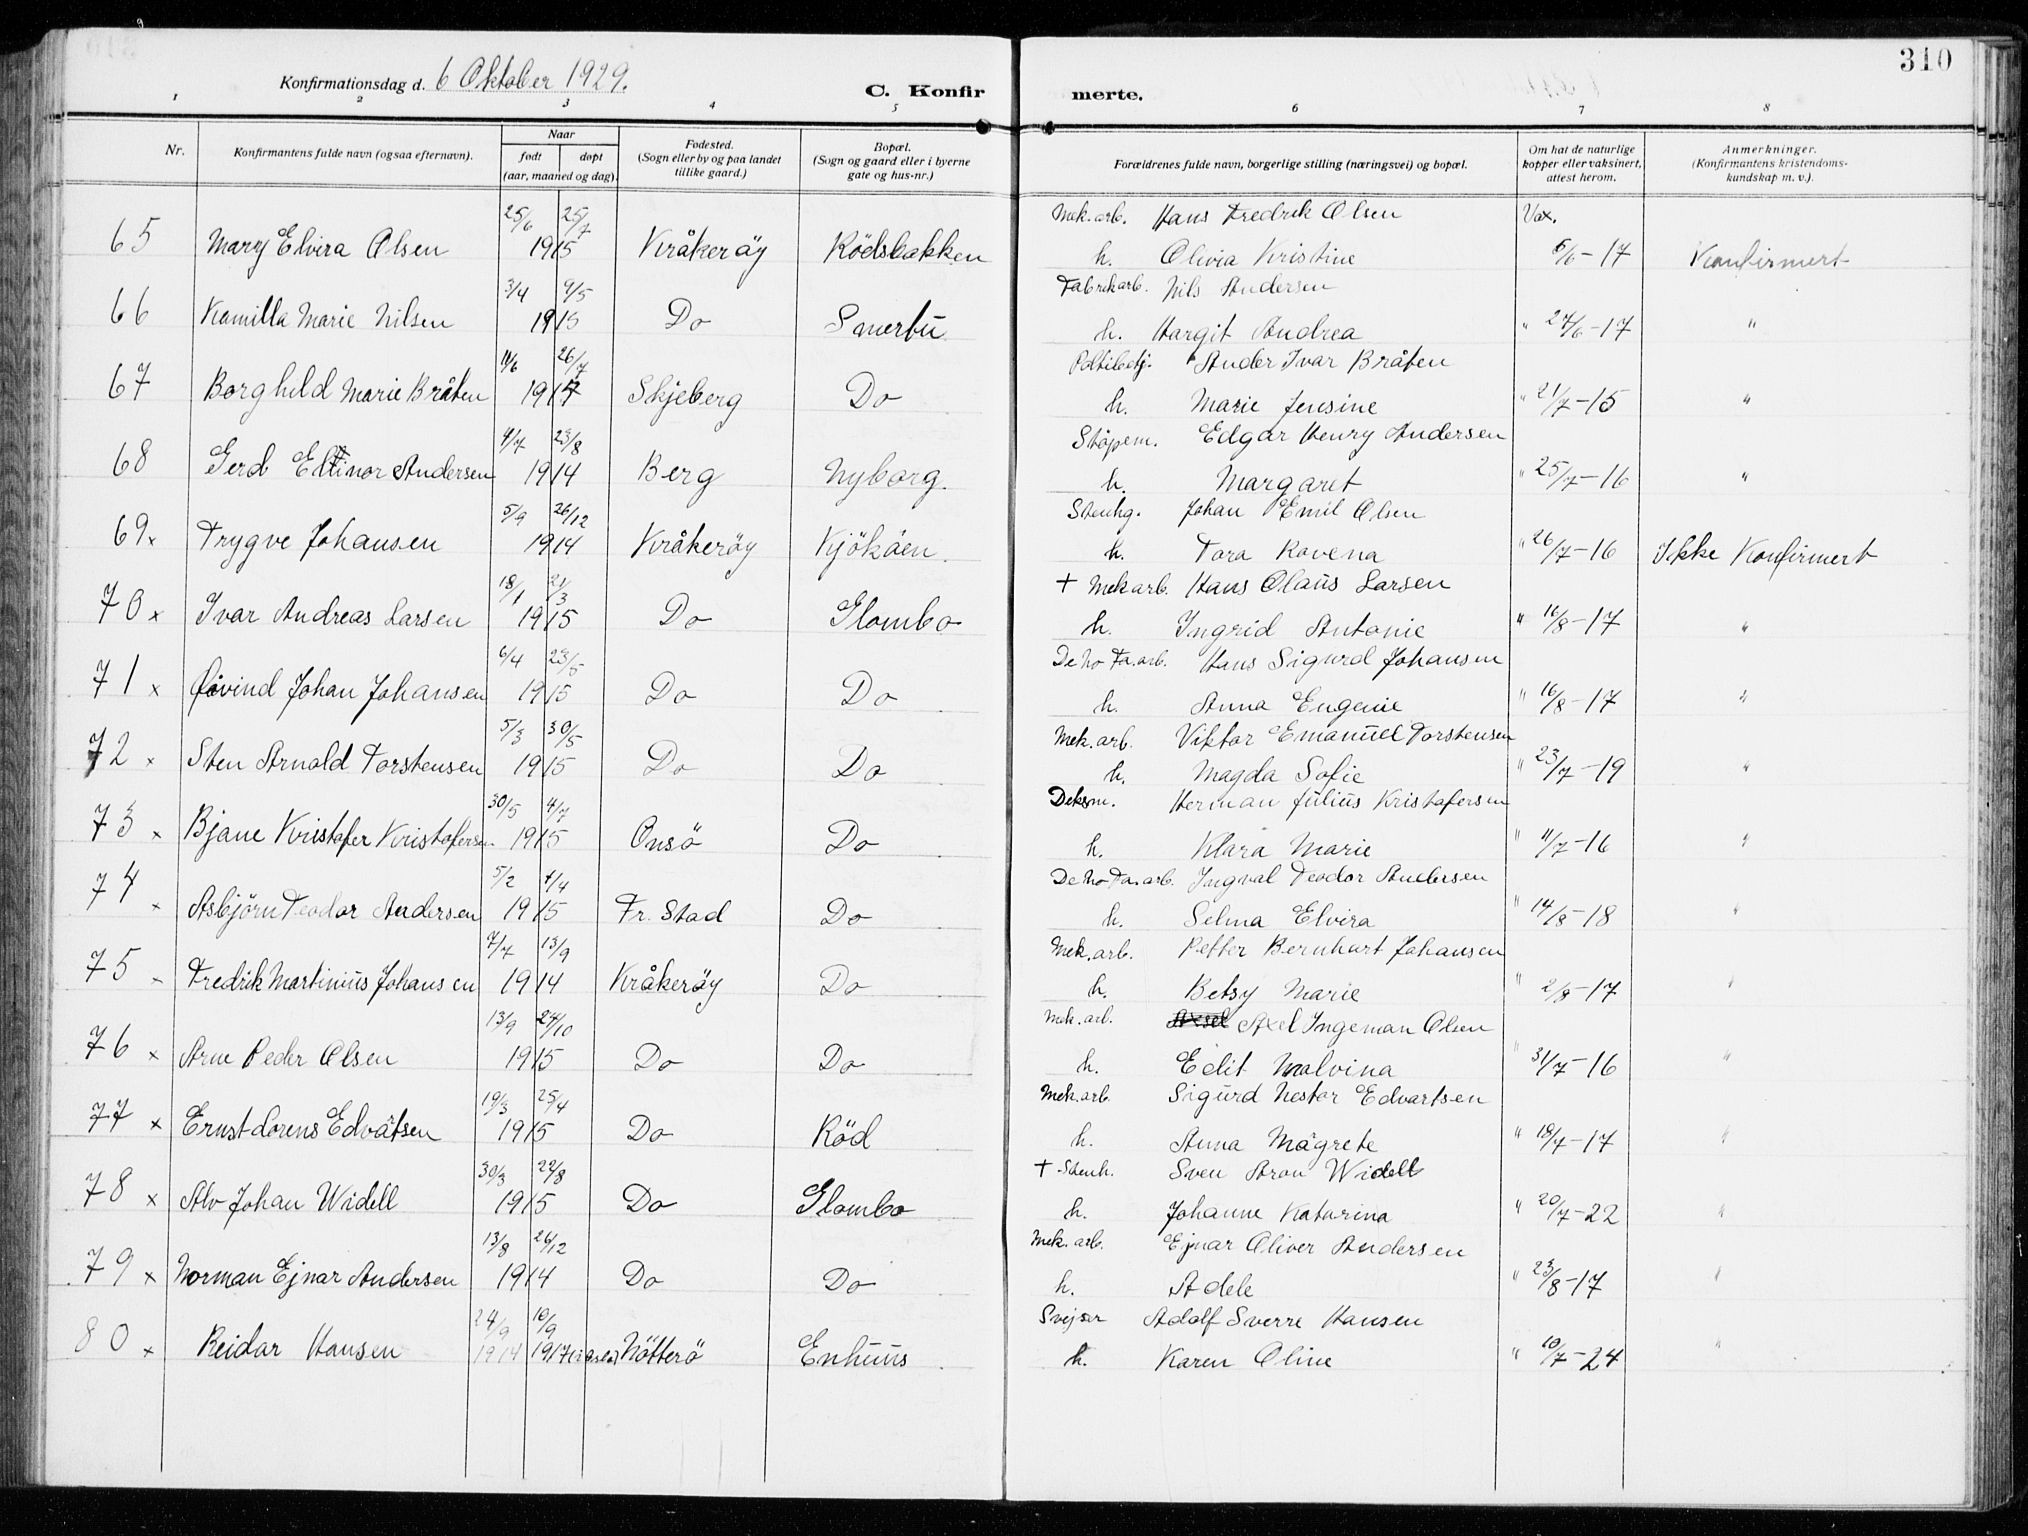 310
Konfirmationsdag d. 6 Oktober 1929.
C. Konfir merte.
1 2 3 4 5 6 7 8
Nr. Konfirmantens fulde navn (ogsaa efternavn). Naar født døpt (aar, maaned og dag). Fødested. (Sogn eller by og paa landet tillike gaard.) Bopæl. (Sogn og gaard eller i byerne gate og hus-nr.) Forældrenes fulde navn, borgerlige stilling (næringsvei) og bopæl. Om hat de naturlige kopper eller vaksinert, attest herom. Anmerkninger. (Konfirmantens kristendoms- kundskap m. v.).
25/6 25/7 Mek. arb. Hans Fredrik Olsen Vax.
65 Mary Elvira Olsen 1915 Kråkeröy Rödsbakken h. Olivia Kristine 5/6-17 Konfirmert
3/4 9/5 Fabrikarb. Nils Andersen
66 Kamilla Marie Nilsen 1915 Do Smertu h. Hargit Andrea " 27/6-17 "
11/6 26/7 Politibetj. Ander Ivar Bråten
67 Borghild Marie Bråten 1914 Skjeberg Do h. Marie Jensine " 21/7-15 "
4/7 23/8 Stöpem. Edgar Henry Andersen
68 Gerd Ellinor Andersen 1914 Berg Nyborg. h. Margaret " 25/7-16 "
5/9 26/12 Stenhg. Johan Emil Olsen
69 x Trygve Johansen 1914 Kråkeröy Kjököen. h. Tora Rovena " 26/7-16 Ikke Konfirmert
18/1 21/3 + Mek arb. Hans Olaus Larsen
70 x Ivar Andreas Larsen 1915 Do Glombo h. Ingrid Antonie " 16/8-17 "
6/4 23/5 De No Fa. arb. Hans Sigurd Johansen
71 x Øivind Johan Johansen 1915 Do Do h. Anna Eugenie " 16/8-17 "
5/3 30/5 Mek. arb. Viktor Emanuel Torstensen
72 x Sten Arnold Torstensen 1915 Do Do h. Magda Sofie " 23/7-19 "
30/5 4/7 Deksm. Herman Julius Kristofersen
73 x Bjane Kristofer Kristofersen 1915 Onsö Do h. Klara Marie " 11/7-16 "
5/2 4/4 De No Fa. arb. Ingval Teodor Andersen
74 x Asbjörn Teodor Andersen 1915 Fr. Stad Do h. Selma Elvira " 14/8-18 "
7/7 13/9 Mek. arb. Petter Bernhart Johansen
75 x Fredrik Martinius Johansen 1914 Kråkeröy Do h. Betsy Marie " 2/8-17 "
13/9 24/10 Mek. arb. Axel Axel Ingeman Olsen
76 x Arne Peder Olsen 1915 Do Do h. Edit Malvina " 31/7-16 "
19/3 25/4 Mek. arb. Sigurd Nestor Edvartsen
77 x Ernst Lorens Edvartsen 1915 Do Röd h. Anna Magrete " 18/7-17 "
30/3 22/8 + Stenh. Sven Aron Widell
78 x Alv Johan Widell 1915 Do Glombo h. Johanne Katarina " 20/7-22 "
13/8 26/12 Mek. arb. Ejnar Oliver Andersen
79 x Norman Ejnar Andersen 1914 Do Do h. Adele " 23/8-17 "
24/9 10/9 Svejser Adolf Sverre Hansen
80 x Reidar Hansen 1914 1917 Nötterö Enhuus h. Karen Oline " 10/7-24 "